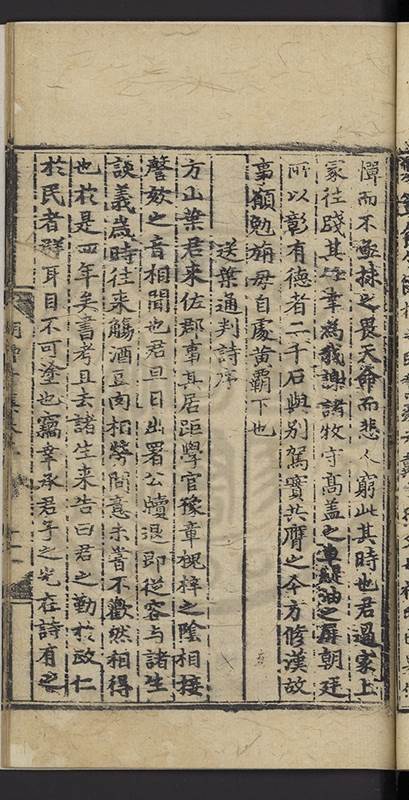 憚而不亟拯之畏天命而悲人窮此其時也君過家上
冢往踐其任幸為我謝諸牧守高蓋之車緹油之屏朝廷
所以彰有德者二千石與别駕實共膺之今方脩漢故
事願勉旃毋自處黄霸下也
送葉通判詩序
方山葉君来佐郡事其居距學官豫章槐梓之陰相接
謦欬之音相聞也君旦日出署公牘退即從容与諸生
談義歲時往来觴酒豆肉相勞問意未甞不歡然相得
也於是四年矣書考且去諸生来告曰君之勤於政仁
於民者群耳目不可塗也竊幸承君子之光在詩有之